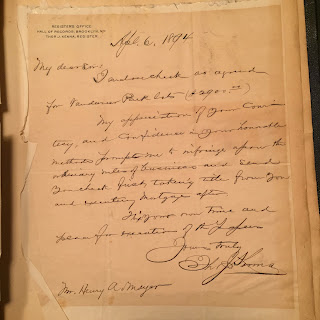 REGISTERS OFFICE
HALL OF RECORDS, BROOKLYN, NY
THOS J. KENNA, REGISTER.
6, 1894
My dear Sir:
I enclose check as agreed
for Vanderveer Park lots
My appreciation of your Cour
tesy, and Confidence in your honorable
methods prompts me to infringe upon the
ordinary rules of business and send
you check first, taking title from you
and executing Mortgage after.
Fix your own time and
place for execution of the papers
Yours truly
Thos J Kenna
Mr. Henry A. Meyer